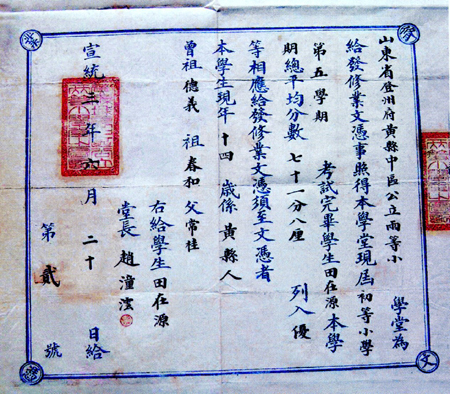 山東省登州府黃縣中區公立兩等小學堂為
給發修業文憑事照得本學堂現屆初等小學
第五學期考試完畢學生田在源本學
期總平均分數七十一分八厘列入優
等相應給發修業文憑須至文憑者
本學生現年十四歲係黃縣人
曾祖德義祖春和父常桂
右給學生田在源
堂長趙潼
宣統三年六月二十日給
第貳號